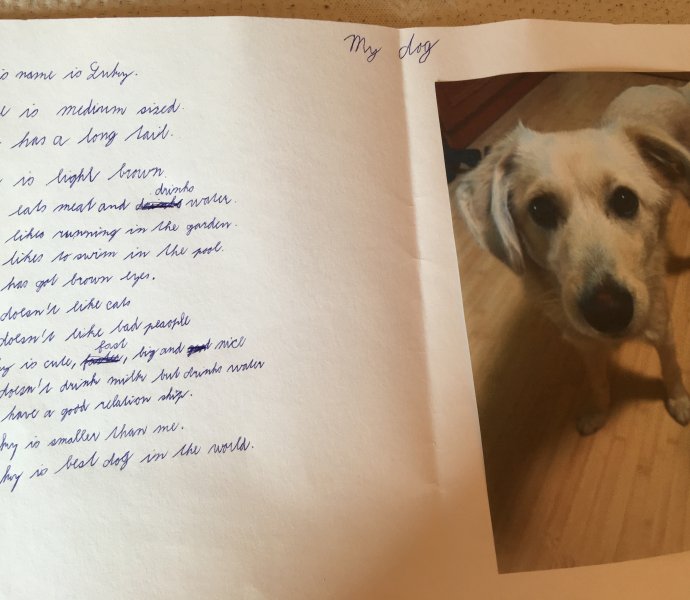 My dog
is name is Luky.
e is medium sized.
has a long tail.
is light brown
eats meat and drinks water.
likes running in the garden.
likes to swim in the pool.
has got brown eyes.
doesn't like cats
doesn't like bad peaople
y is cute, fast, big and nice
doesn't drink milk but drinks water
have a good relation ship.
ky is smaller than me.
ky is best dog in the world.